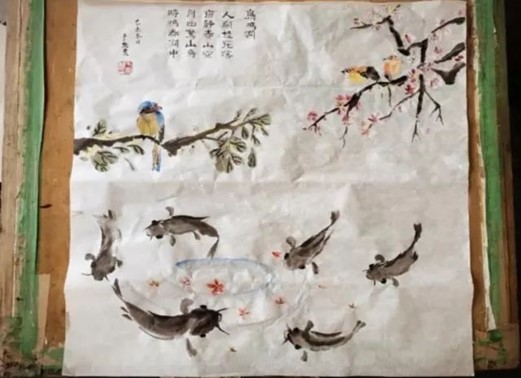 鳥鳴澗
人閒桂花落
夜靜春山空
月出驚山鳥
時鳴春澗中